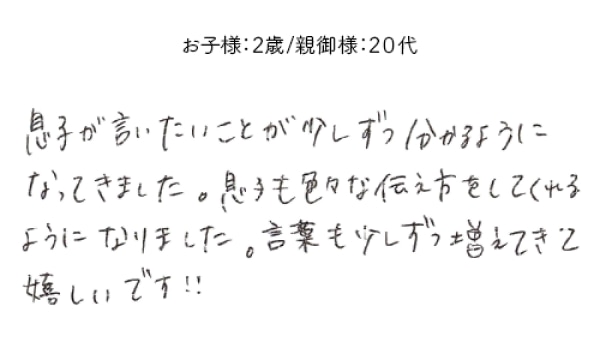 お子様：2歳/親御様：20代
息子が言いたいことが少しずつ分かるように
なってきました。息子も色々な伝え方をしてくれる
ようになりました。言葉も少しずつ増えてきて
嬉しいです!!